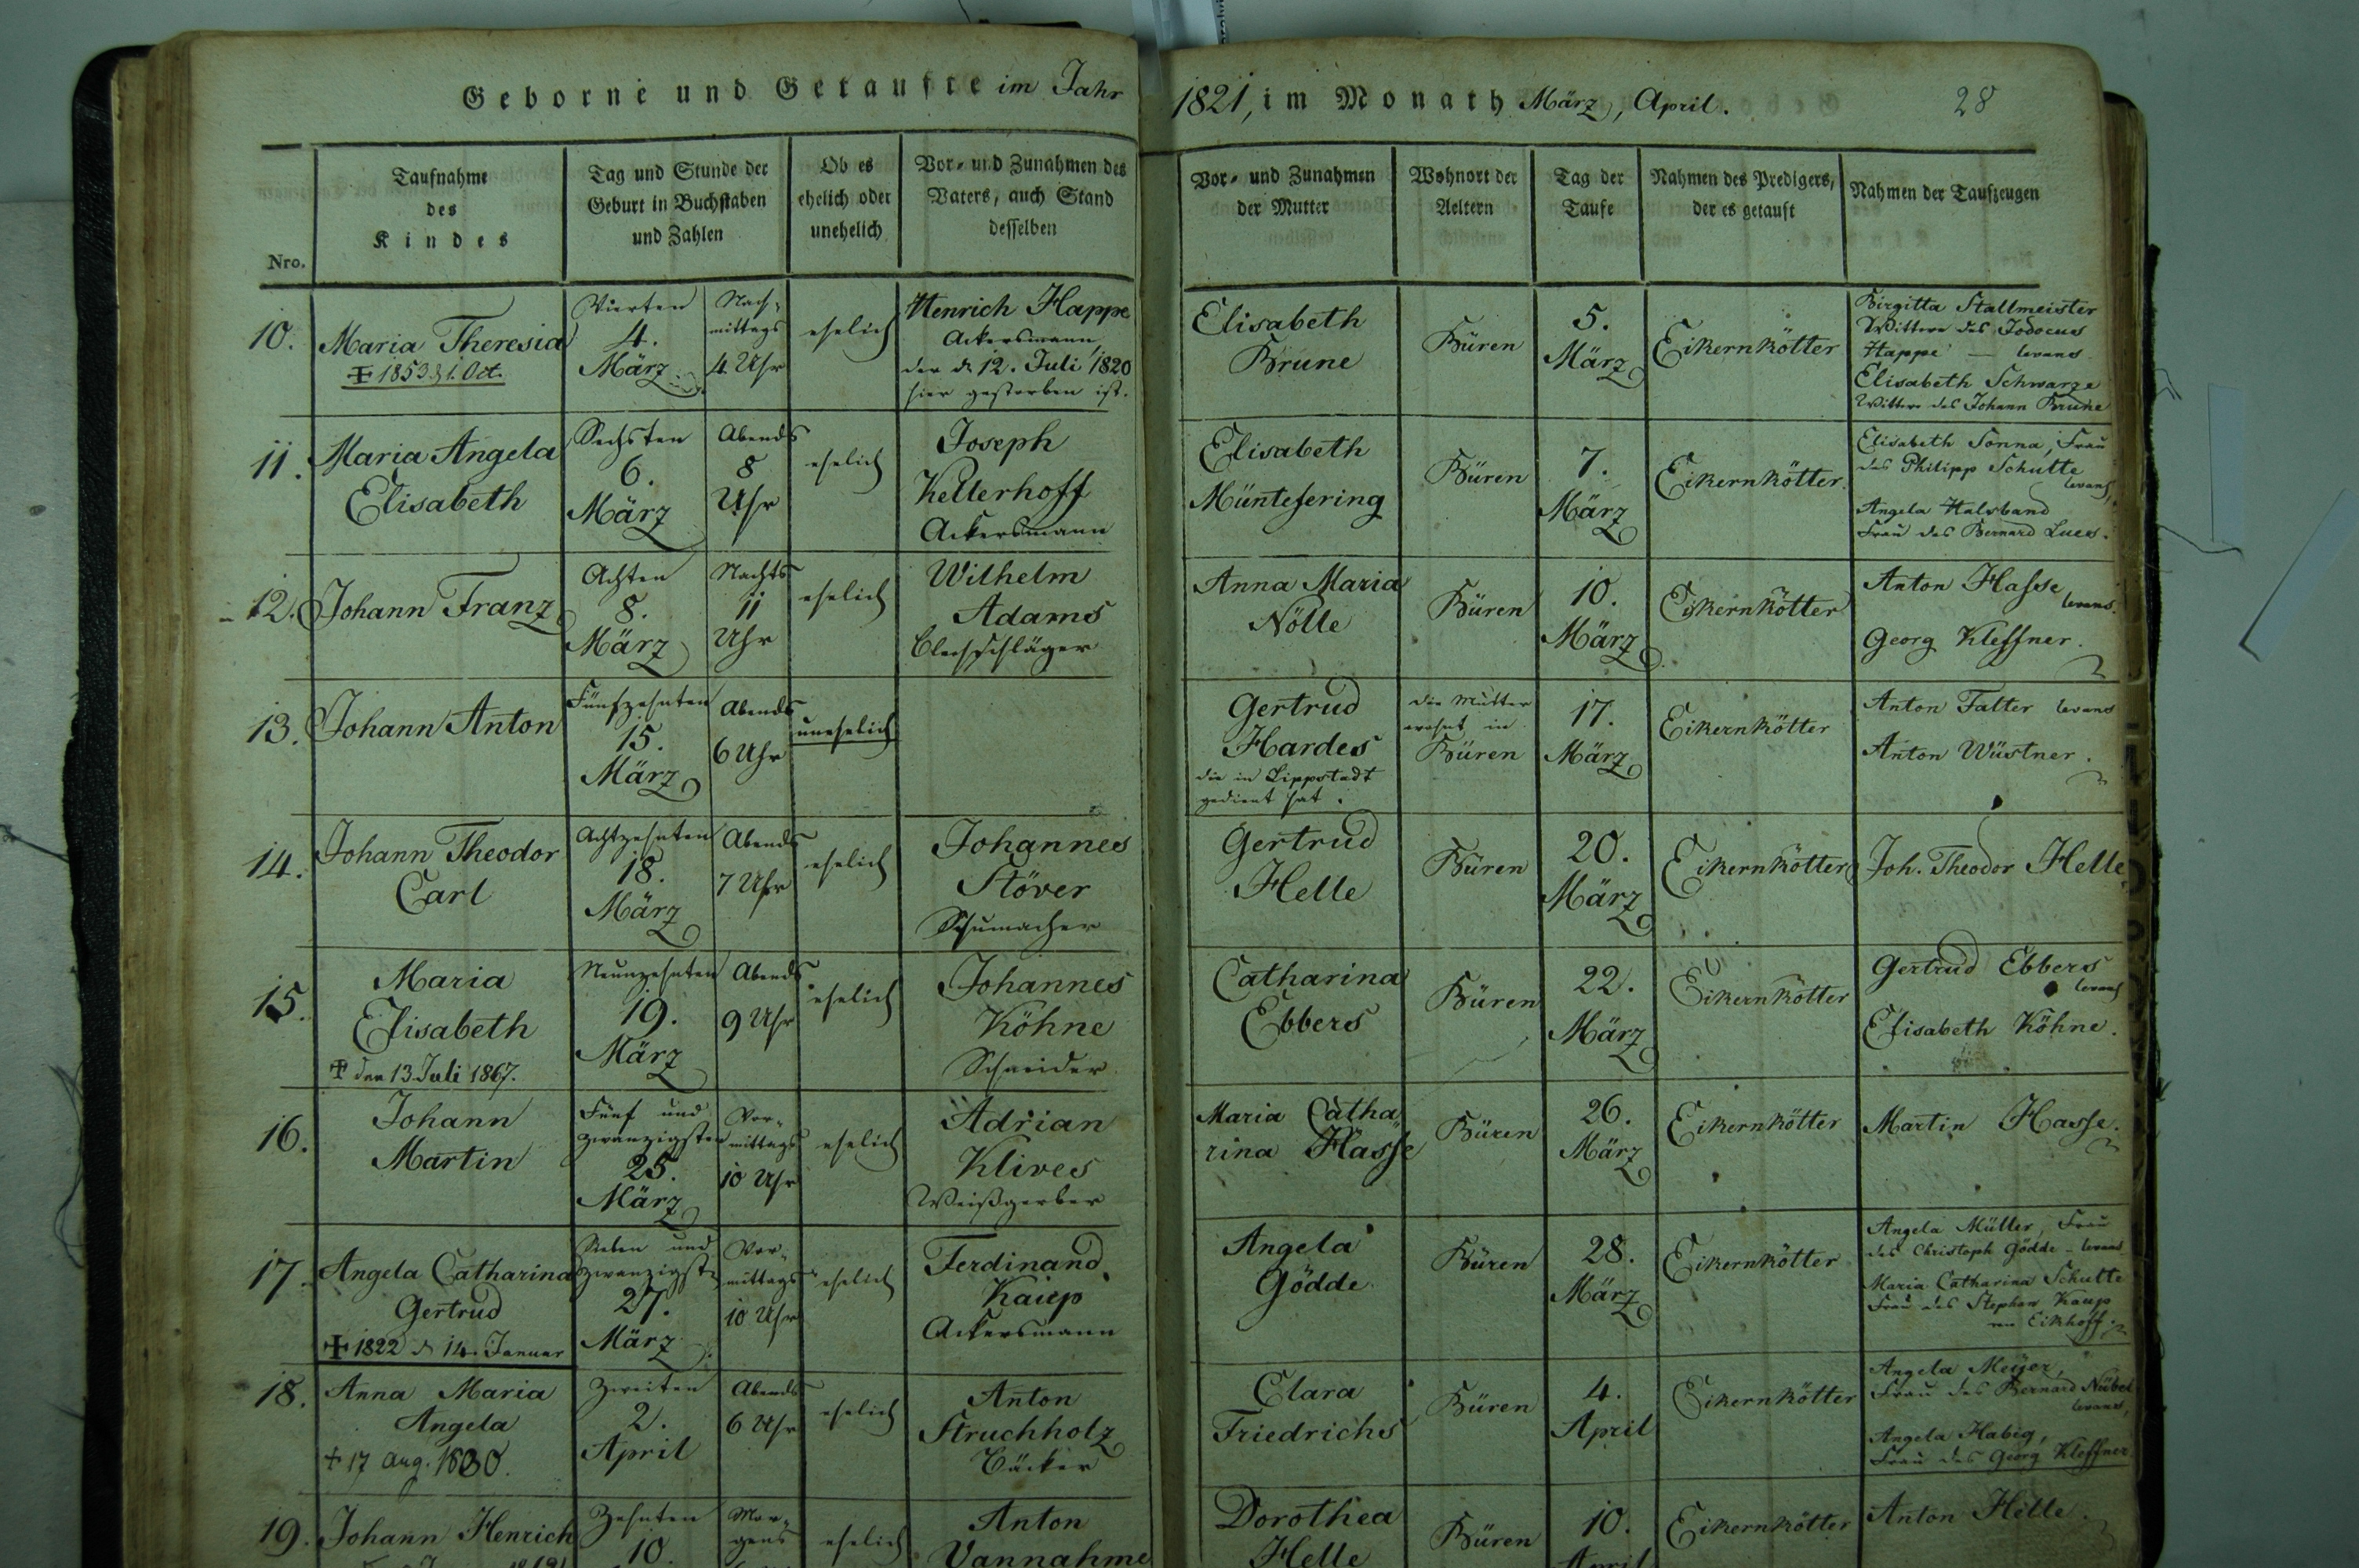 Geborne und Getaufte im Jahr 1821, im Monath März, April. 28
Nro.
Taufnahme
des
Kindes
Tag und Stunde der
Geburt in Buchstaben
und Zahlen
Ob es
ehelich oder
unehelich
Vor- und Zunahmen des
Vaters, auch Stand
desselben
Vor- und Zunahmen
der Mutter
Wohnort der
Aeltern
Tag der
Taufe
Nahmen des Predigers,
der es getauft
Nahmen der Taufzeugen
10.
Maria Theresia
✝ 1853 d 1. Oct.
Vierten
4.
März
Nach-
mittags
4 Uhr
ehelich
Henrich Happe
Ackersmann
der d. 12. Juli 1820
hier gestorben ist.
Elisabeth
Brune
Büren
5.
März
Eikernkötter
Birgitta Stallmeister
Wittwe des Jodocus
Happe — levans
Elisabeth Schwarze
Wittwe des Johann Brune
11.
Maria Angela
Elisabeth
Sechsten
6.
März
Abends
8
Uhr
ehelich
Joseph
Kellerhoff
Ackersmann
Elisabeth
Müntefering
Büren
7.
März
Eikernkötter
Elisabeth Sonna, Frau
des Philipp Schutte
levans,
Angela Halsband
Frau des Bernard Lues.
12.
Johann Franz
Achten
8.
März
Nachts
11
Uhr
ehelich
Wilhelm
Adams
Blechschläger
Anna Maria
Nölle
Büren
10.
März
Eikernkötter
Anton Hasse
levans.
Georg Kleffner.
13.
Johann Anton
Fünfzehnten
15.
März
Abends
6 Uhr
unehelich
Gertrud
Hardes
die in Lippstadt
gedient hat.
die Mutter
wohnt in
Büren
17.
März
Eikernkötter
Anton Falter levans
Anton Wüstner.
14.
Johann Theodor
Carl
Achtzehnten
18.
März
Abends
7 Uhr
ehelich
Johannes
Stöver
Schumacher
Gertrud
Helle
Büren
20.
März
Eikernkötter
Joh. Theodor Helle
15.
Maria
Elisabeth
✝ den 13. Juli 1867.
Neunzehnten
19.
März
Abends
9 Uhr
ehelich
Johannes
Köhne
Schneider
Catharina
Ebbers
Büren
22.
März
Eikernkötter
Gertrud Ebbers
levans
Elisabeth Köhne.
16.
Johann
Martin
Fünf und
zwanzigsten
25.
März
Vor-
mittags
10 Uhr
ehelich
Adrian
Klives
Weißgerber
Maria Catha
rina Hasse
Büren
26.
März
Eikernkötter
Martin Hasse.
17.
Angela Catharina
Gertrud
✝ 1822 d 14. Januar
Sieben und
zwanzigst
27.
März
Vor-
mittags
10 Uhr
ehelich
Ferdinand
Kaup
Ackersmann
Angela
Gödde
Büren
28.
März
Eikernkötter
Angela Müller, Frau
des Christoph Gödde - levans
Maria Catharina Schutte
Frau des Stephan Kaup
Eikhoff.
18.
Anna Maria
Angela
+ 17 Aug. 1830.
Zweiten
2.
April
Abends
6 Uhr
ehelich
Anton
Struchholz
Bäcker
Clara
Friedrichs
Büren
4.
April
Eikernkötter
Angela Meyer,
Frau des Bernard Nübel
levans,
Angela Habig,
Frau des Georg Kleffner
19.
Johann Henrich
Zehnten
10.
Mor-
gens
ehelich
Anton
Vannahme
Dorothea
Helle
Büren
10.
April
Eikernkötter
Anton Helle.